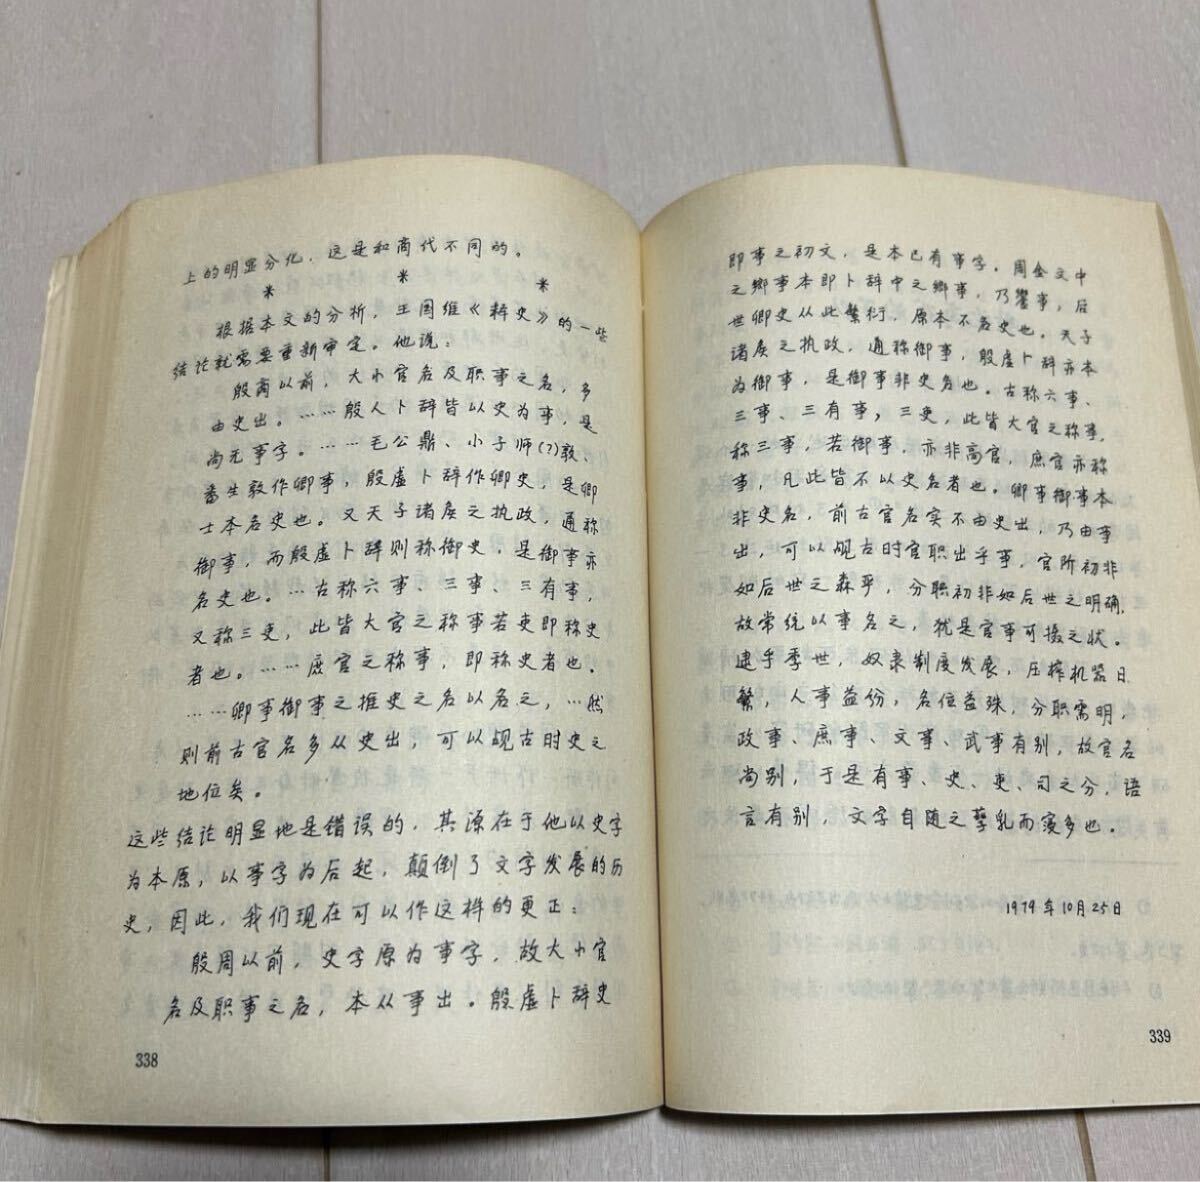 上的明显分化，这是和商代不同的。
* * *
根据本文的分析，王国维《释史》的一些
结论就需要重新审定。他说：
殷商以前，大小官名及职事之名，多
由史出。……殷人卜辞皆以史为事，是
尚无事字。……毛公鼎、小子师(?)敦、
番生敦作卿事，殷虚卜辞作卿史，是卿
士本名史也。又天子诸侯之执政，通称
御事，而殷虚卜辞则称御史，是御事亦
名史也。…古称六事、三事、三有事，
又称三吏，此皆大官之称事若吏即称史
者也。……庶官之称事，即称史者也。
……卿事御事之推史之名以名之，…然
则前古官名多从史出，可以觇古时史之
地位矣。
这些结论明显地是错误的，其源在于他以史字
为本原，以事字为后起，颠倒了文字发展的历
史，因此，我们现在可以作这样的更正：
殷周以前，史字原为事字，故大小官
名及职事之名，本从事出。殷虚卜辞史
338
即事之初文，是本已有事字。周金文中
之乡事本即卜辞中之乡事，乃飨事，后
世卿史从此繁衍，原本不名史也。天子
诸侯之执政，通称御事，殷虚卜辞亦本
为御事，是御事非史名也。古称六事、
三事、三有事，三吏，此皆大官之称事，
称三事，若御事，亦非高官，庶官亦称
事，凡此皆不以史名者也。卿事御事本
非史名，前古官名实不由史出，乃由事
出，可以觇古时官职出乎事，官阶初非
如后世之森严，分职初非如后世之明确，
故常统以事名之，犹是官事可摄之状。
逮乎季世，奴隶制度发展，压榨机器日
繁，人事益份，名位益殊，分职需明，
政事、庶事、文事、武事有别，故官名
尚别，于是有事、史、吏、司之分，语
言有别、文字自随之孳乳而寖多也。
1979年10月25日
339